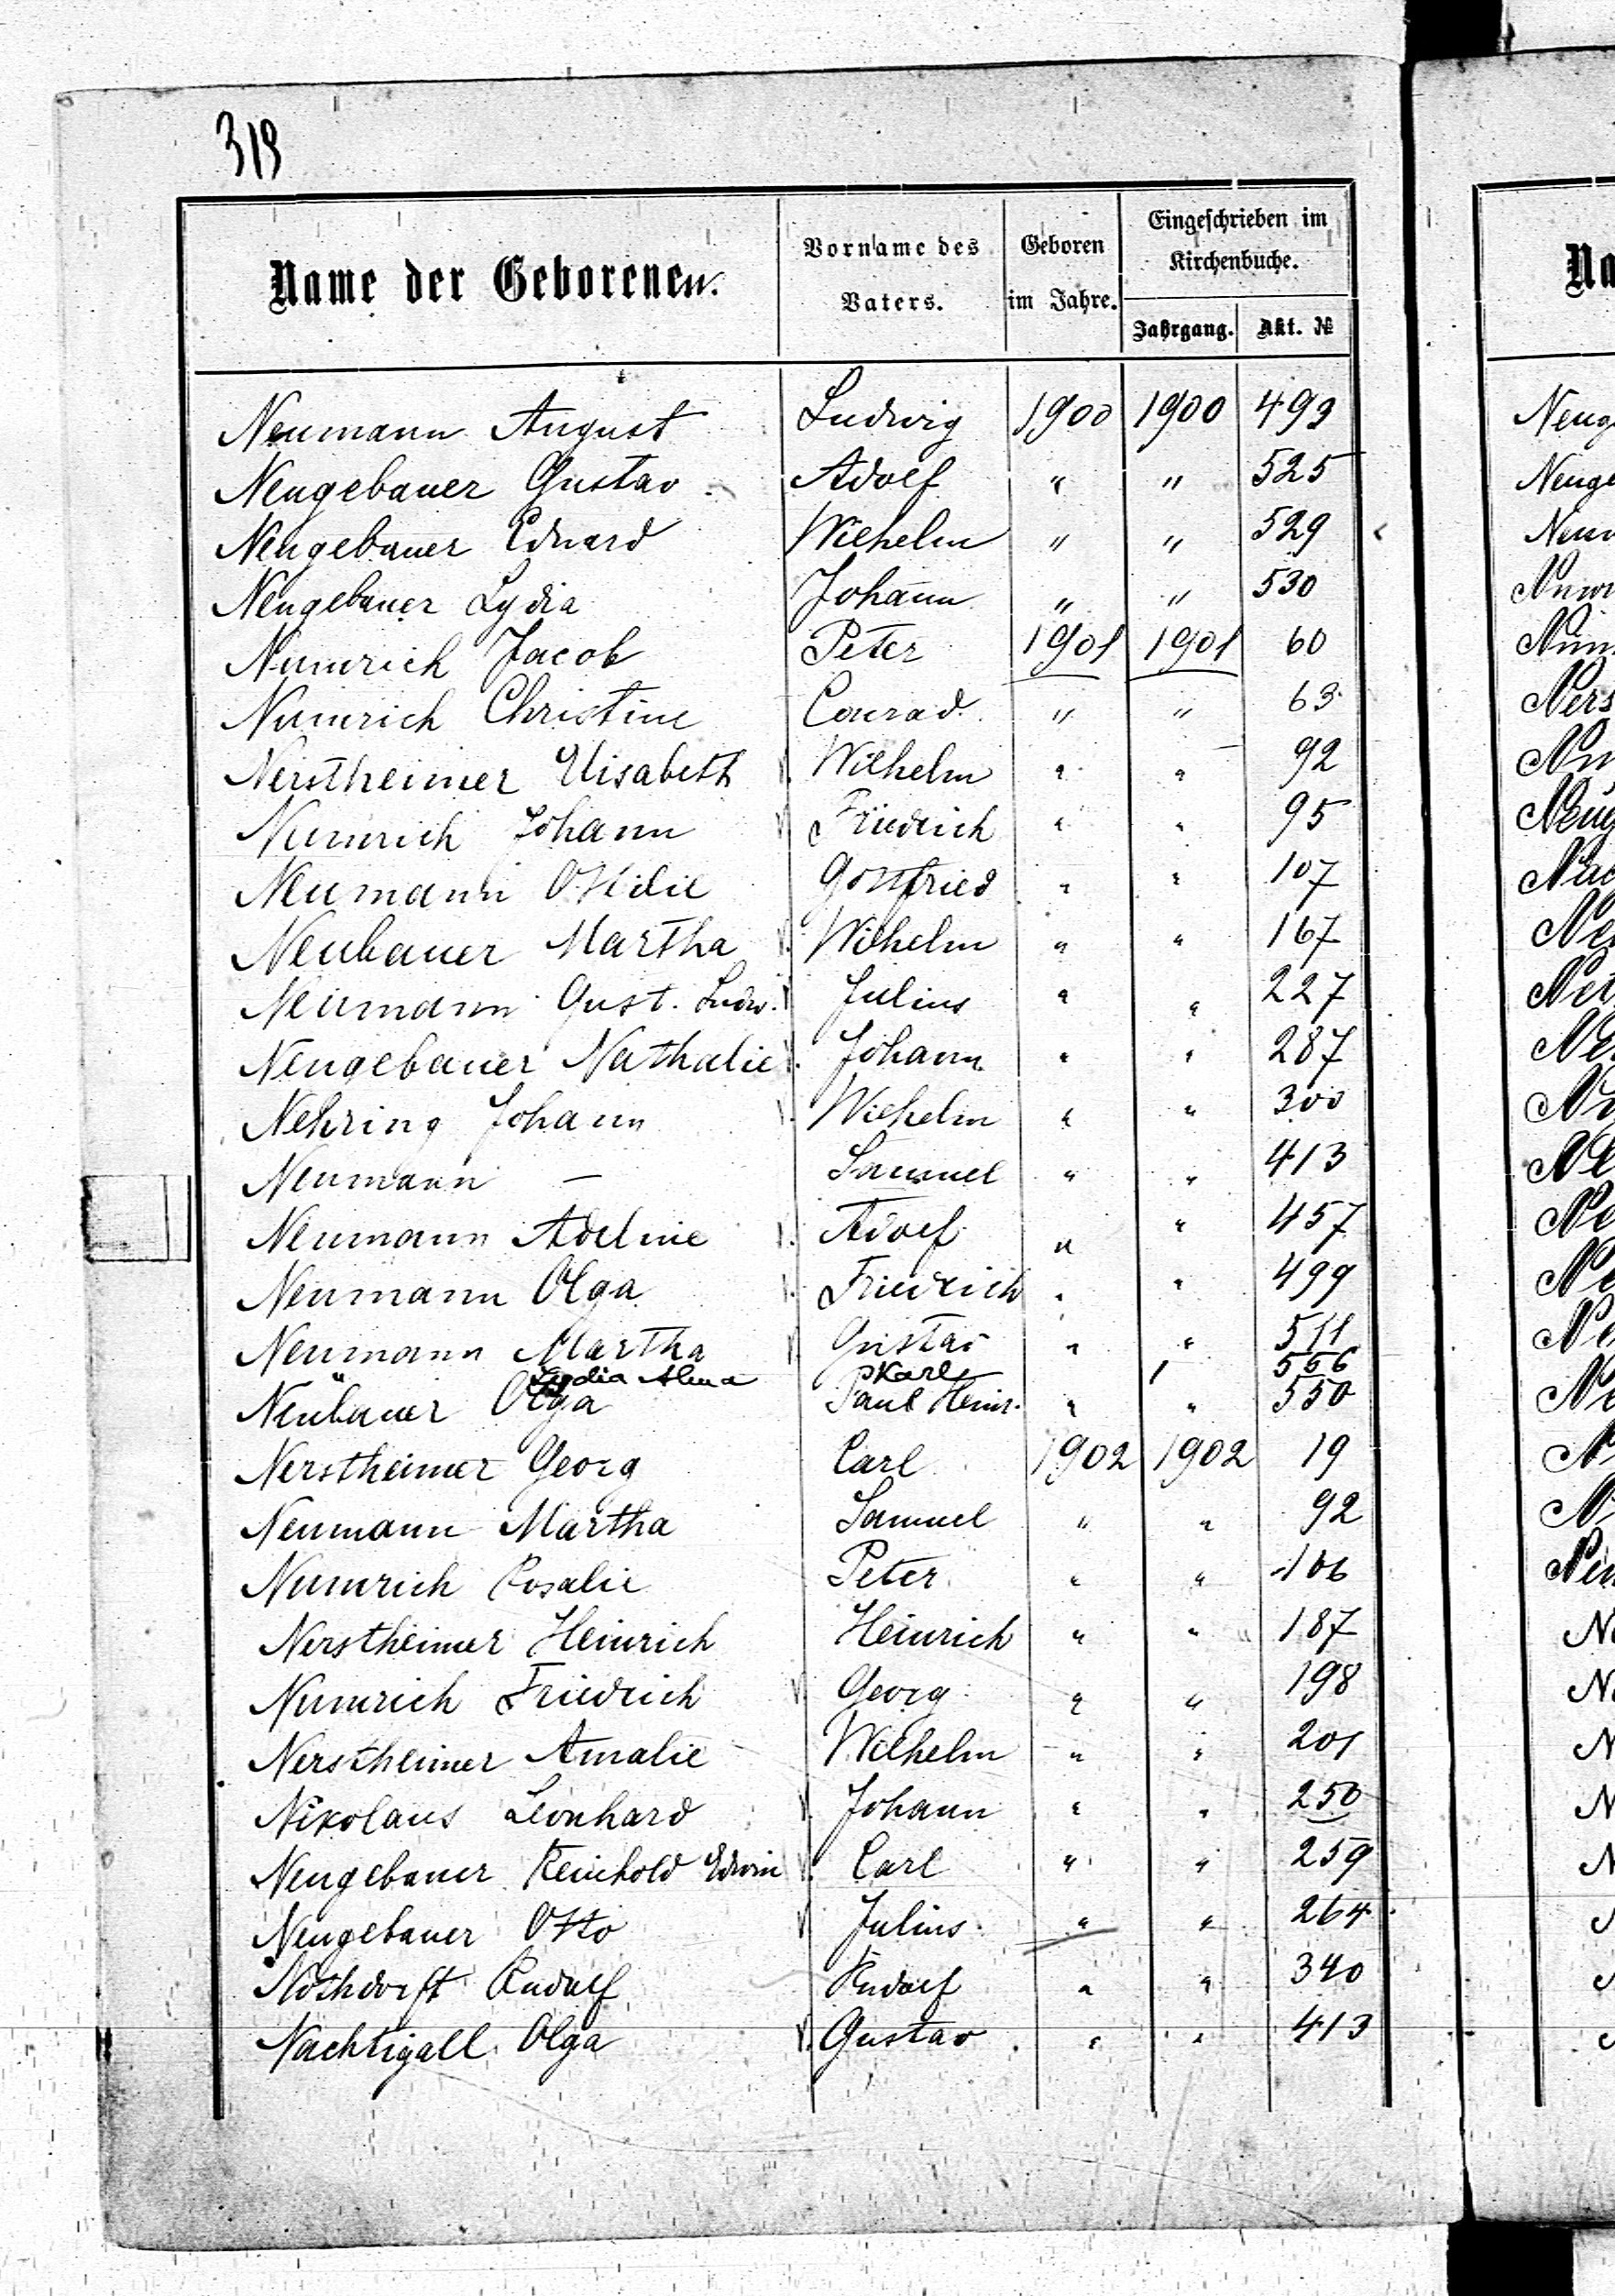 318
Name der Geborenen. Vorname des Vaters. Geboren im Jahre. Eingeschrieben im Kirchenbuche.
Jahrgang. Akt. №
Neumann August Ludwig 1900 1900 493
Neugebauer Gustav Adolf " " 525
Neugebauer Eduard Wilhelm " " 529
Neugebauer Lydia Johann " " 530
Numrich Jacob Peter 1901 1901 60
Numrich Christine Conrad " " 63
Nerstheimer Elisabeth Wilhelm " " 92
Numrich Johann Friedrich " " 95
Neumann Ottilie Gottfried " " 107
Neubauer Martha Wilhelm " " 167
Neumann Gust. Ludw. Julius " " 227
Neugebauer Nathalie Johann " " 287
Nehring Johann Wilhelm " " 300
Neumann — Samuel " " 413
Neumann Adeline Adolf " " 457
Neumann Olga Friedrich " " 499
Neumann Martha Gustav " " 511
" Lydia Alma Karl 556
Neubauer Olga Paul Heinr. " " 550
Nerstheimer Georg Carl 1902 1902 19
Neumann Martha Samuel " " 92
Numrich Rosalie Peter " " 106
Nerstheimer Heinrich Heinrich " " 187
Numrich Friedrich Georg " " 198
Nerstheimer Amalie Wilhelm " " 201
Nikolaus Leonhard Johann " " 250
Neugebauer Reinhold Edwin Carl " " 259
Neugebauer Otto Julius " " 264
Nothdorft Rudolf Rudolf " " 340
Nachtigall Olga Gustav " " 413